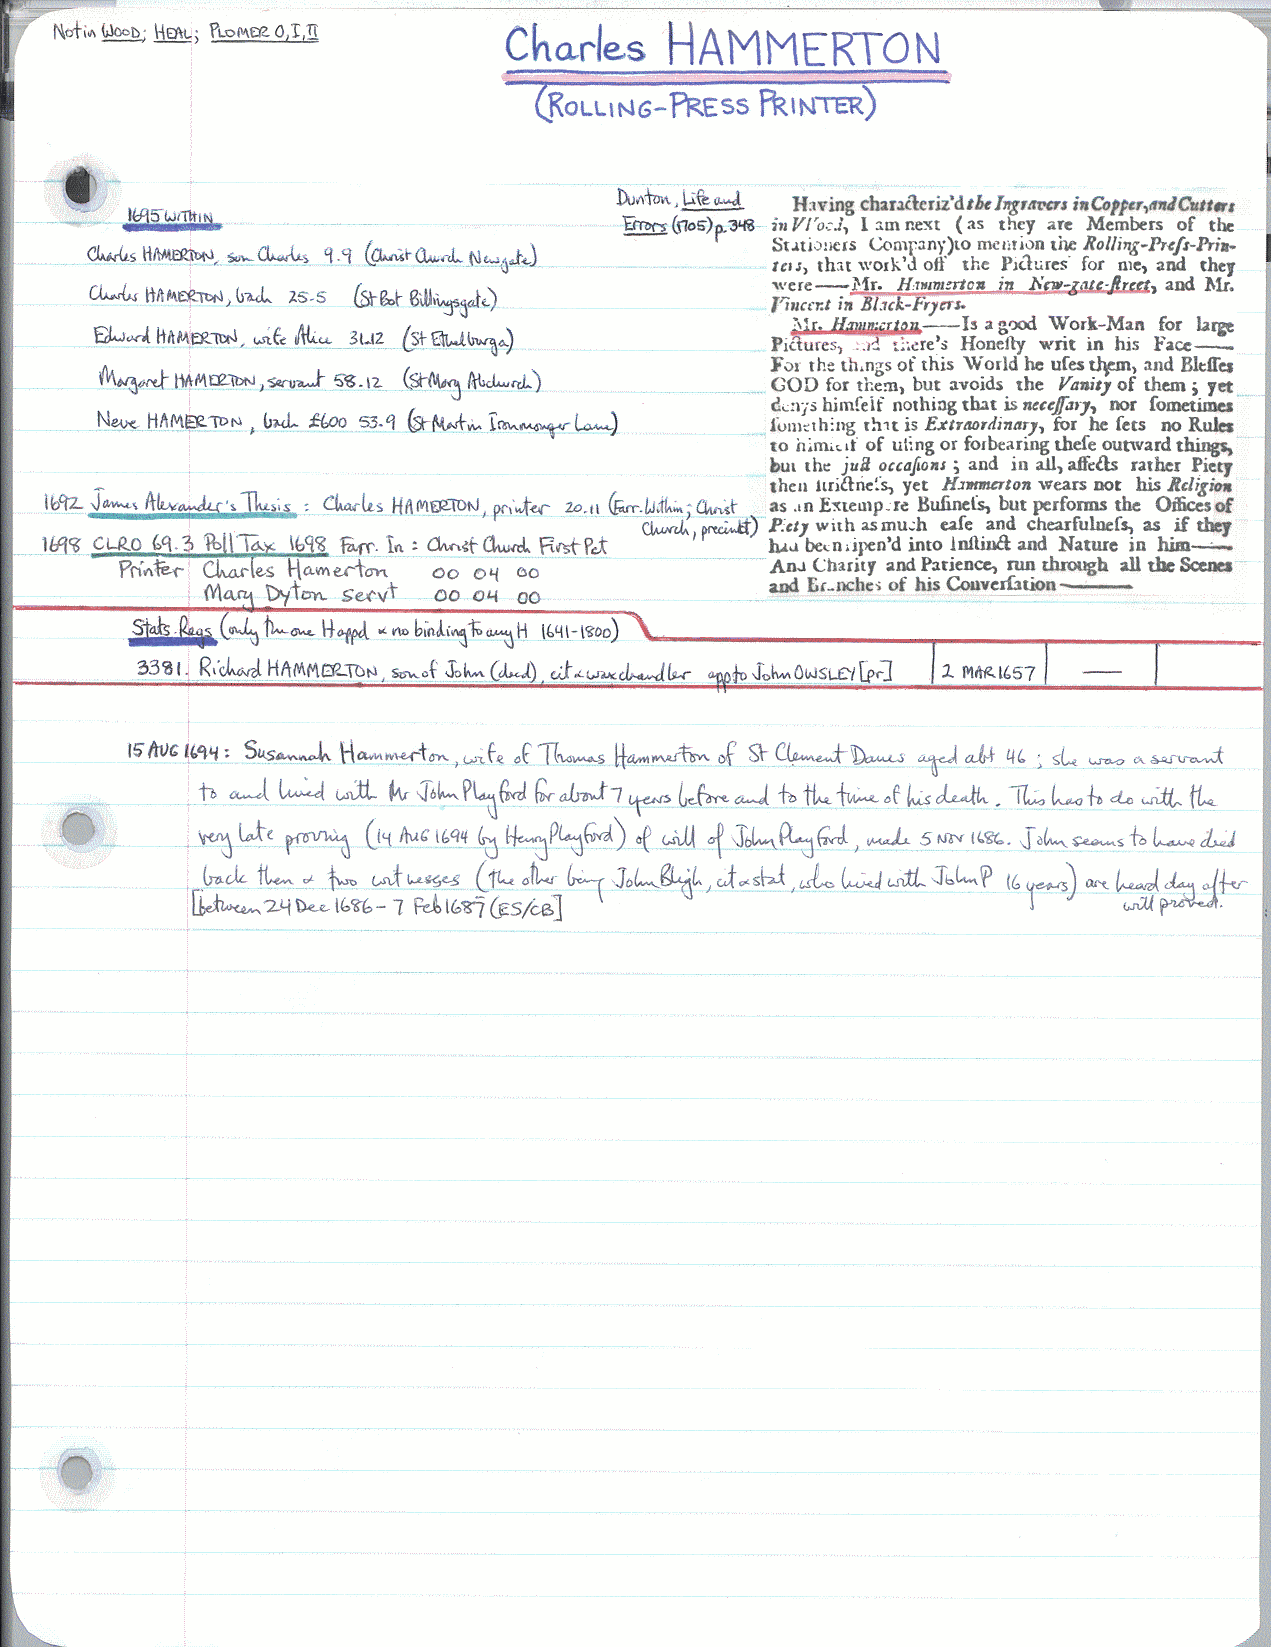 Not in WOOD; HEAL; PLOMER O, I, II
Charles HAMMERTON
(ROLLING-PRESS PRINTER)
1695 WITHIN
Charles HAMERTON, son Charles 9.9 (Christ Church Newgate)
Charles HAMERTON, bach 25.5 (St Bot Billingsgate)
Edward HAMERTON, wife Alice 31.12 (St Ethelburga)
Margaret HAMERTON, servant 58.12 (St Mary Abchurch)
Neve HAMERTON, bach £600 53.9 (St Martin Ironmonger Lane)
Dunton, Life and
Errors (1705) p. 348
Having characteriz'd the Ingravers in Copper, and Cutters
in Wood, I am next (as they are Members of the
Stationers Company) to mention the Rolling-Press-Prin-
ters, that work'd off the Pictures for me, and they
were——Mr. Hammerton in New-gate-street, and Mr.
Vincent in Black-Fryers.
Mr. Hammerton——Is a good Work-Man for large
Pictures, and there's Honesty writ in his Face——
For the things of this World he uses them, and Blesses
GOD for them, but avoids the Vanity of them; yet
denys himself nothing that is necessary, nor sometimes
something that is Extraordinary, for he sets no Rules
to himself of using or forbearing these outward things,
but the just occasions; and in all, affects rather Piety
then strictness, yet Hammerton wears not his Religion
as an Extempore Business, but performs the Offices of
Piety with as much ease and chearfulness, as if they
had been ripen'd into Instinct and Nature in him——
And Charity and Patience, run through all the Scenes
and Branches of his Conversation——
1692 James Alexander's Thesis: Charles HAMERTON, printer 20.11 (Farr. Within; Christ
Church, precinct)
1698 CLRO 69.3 Poll Tax 1698 Farr. In: Christ Church First Pct
Printer Charles Hamerton 00 04 00
Mary Dyton servt 00 04 00
Stats. Regs (only the one H appd & no binding to any H 1641-1800)
3381. Richard HAMMERTON, son of John (decd), cit & waxchandler app to John OWSLEY [pr] 2 MAR 1657 —
15 AUG 1694: Susannah Hammerton, wife of Thomas Hammerton of St Clement Danes aged abt 46; she was a servant
to and lived with Mr John Playford for about 7 years before and to the time of his death. This has to do with the
very late proving (14 AUG 1694 by Henry Playford) of will of John Playford, made 5 NOV 1686. John seems to have died
back then & two witnesses (the other being John Bligh, cit & stat, who lived with John P 16 years) are heard day after
will proved.
[between 24 Dec 1686 – 7 Feb 1687 (ES/CB]